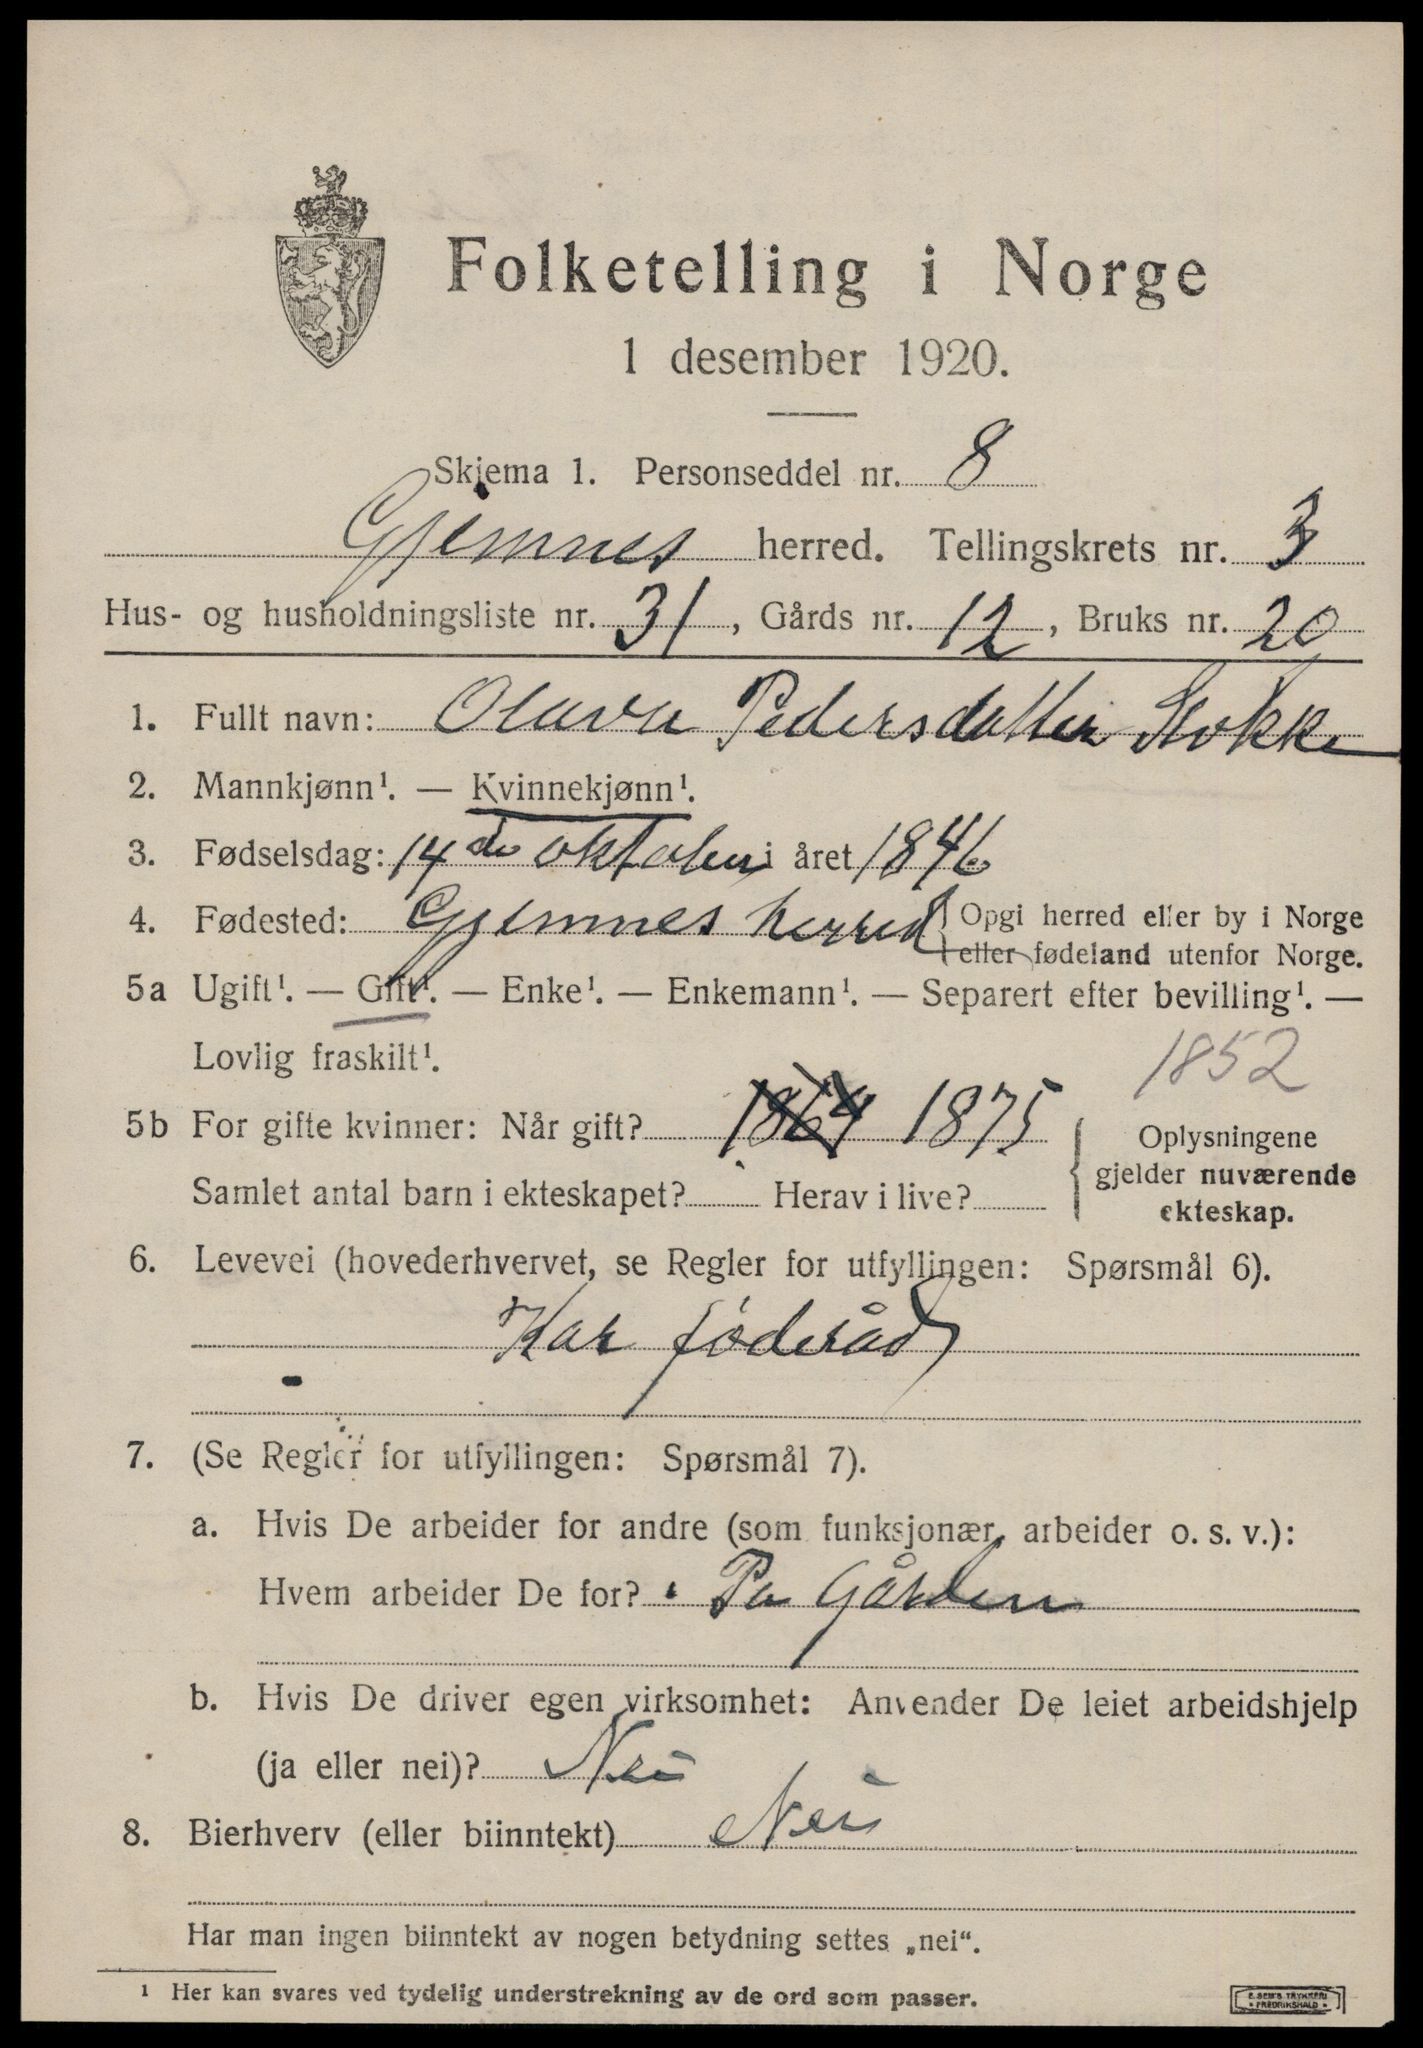 Folketelling i Norge
1 desember 1920.
Skjema 1. Personseddel nr. 8
Gjemnes herred. Tellingskrets nr. 3
Hus- og husholdningsliste nr. 31, Gårds nr. 12, Bruks nr. 20
1. Fullt navn: Olava Pedersdatter Stokke
2. Mannkjønn¹. — Kvinnekjønn¹.
3. Fødselsdag: 14de oktober i året 1846
4. Fødested: Gjemnes herred { Opgi herred eller by i Norge
eller fødeland utenfor Norge.
5a Ugift¹. — Gift¹. — Enke¹. — Enkemann¹. — Separert efter bevilling¹. —
Lovlig fraskilt¹.
1852
5b For gifte kvinner: Når gift? 1864 1875
Samlet antal barn i ekteskapet? Herav i live?
{ Oplysningene
gjelder nuværende
ekteskap.
6. Levevei (hovederhvervet, se Regler for utfyllingen: Spørsmål 6).
Har føderåd
7. (Se Regler for utfyllingen: Spørsmål 7).
a. Hvis De arbeider for andre (som funksjonær, arbeider o. s. v.):
Hvem arbeider De for? Pa Gården
b. Hvis De driver egen virksomhet: Anvender De leiet arbeidshjelp
(ja eller nei)? Nei
8. Bierhverv (eller biinntekt) Nei
Har man ingen biinntekt av nogen betydning settes „nei“.
¹ Her kan svares ved tydelig understrekning av de ord som passer.
E. SEM'S TRYKKERI
FREDRIKSHALD